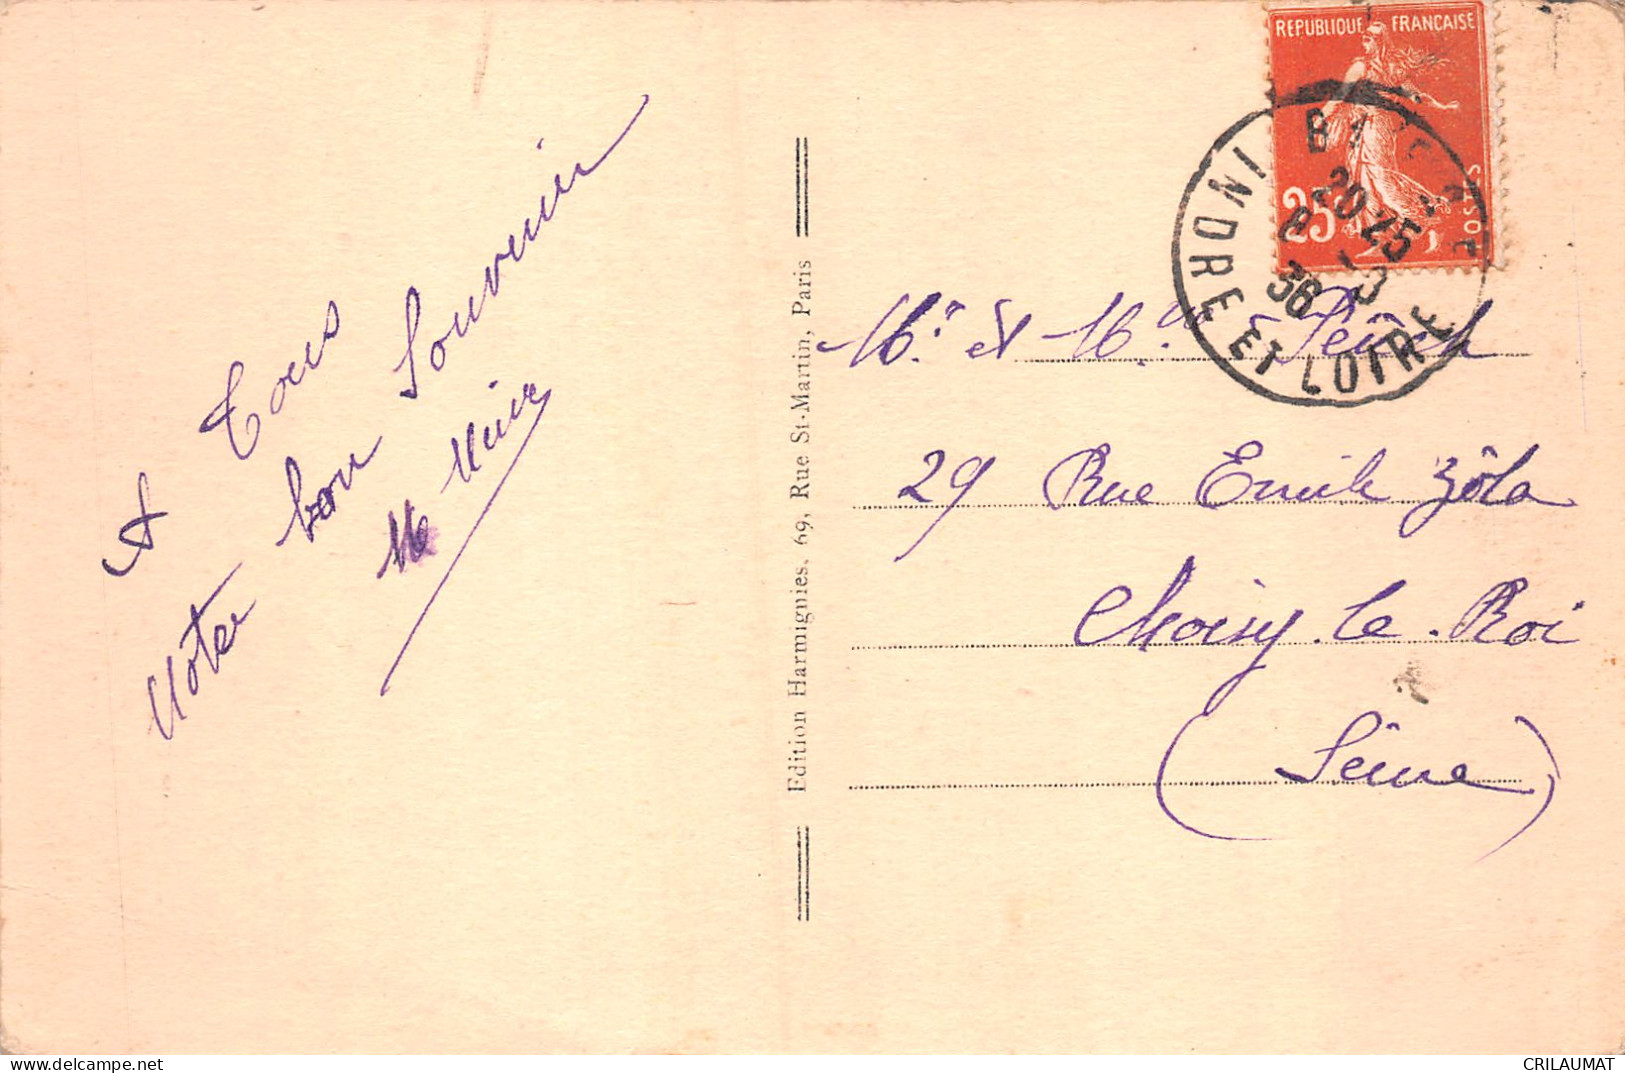 A Tous
Notre bon Souvenir
Edition Harmignies, 69, Rue St-Martin, Paris
REPUBLIQUE FRANÇAISE
25
POSTES
20 25
36
INDRE ET LOIRE
Mr et Me
29 Rue Emile Zôla
Choisy-le-Roi
(Seine)
CRILAUMAT